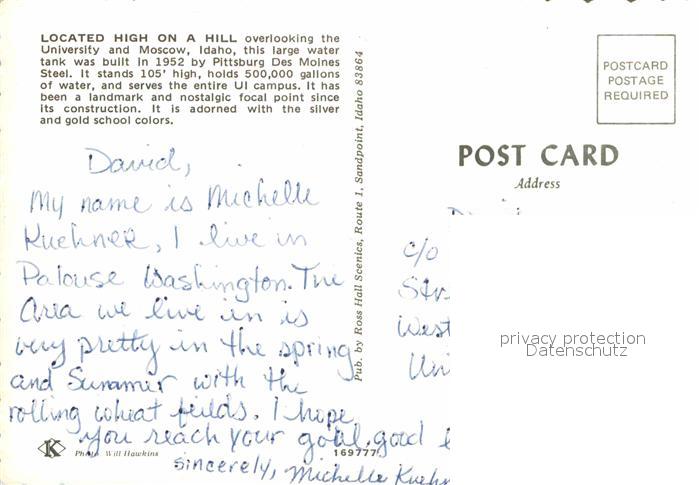 LOCATED HIGH ON A HILL overlooking the
University and Moscow, Idaho, this large water
tank was built in 1952 by Pittsburg Des Moines
Steel. It stands 105' high, holds 500,000 gallons
of water, and serves the entire UI campus. It has
been a landmark and nostalgic focal point since
its construction. It is adorned with the silver
and gold school colors.
David,
My name is Michelle
Kuehner, I live in
Palouse Washington. The
Area we live in is
very pretty in the spring
and Summer with the
rolling wheat fields. I hope
you reach your goal, good
sincerely, Michelle
K
Photo Will Hawkins
169777
Pub. by Ross Hall Scenics, Route 1, Sandpoint, Idaho 83864
POSTCARD
POSTAGE
REQUIRED
POST CARD
Address
c/o
West
privacy protection
Datenschutz